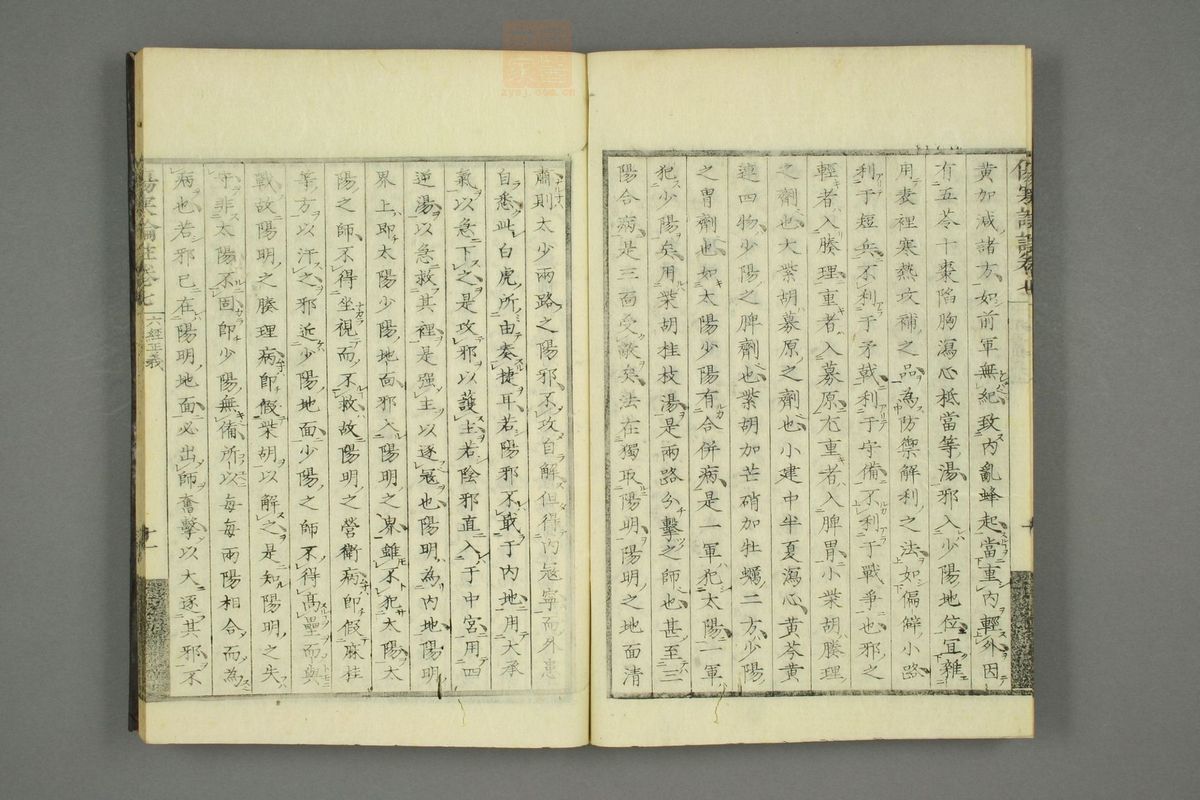 黄加減諸方如前軍無紀致內亂蜂起當重內輕外因
有五苓十棗陷胸瀉心柢當等湯邪入少陽地位宜雜
用表裡寒𤍠攻補之品為防禦解利之法如偏僻小路
利于短兵不利于矛戟利于守備不利于戰爭也邪之
輕者入腠理重者入募原尤重者入脾胃小柴胡腠理
之劑也大柴胡募原之劑也小建中半夏瀉心黄芩黄
連四物少陽之脾劑也柴胡加芒硝加牡蠣二方少陽
之胃劑也如太陽少陽有合併病是一軍犯太陽一軍
犯少陽矣用柴胡桂枝湯是兩路分擊之師也甚至三
陽合病是三面受敵矣法在獨取陽明陽明之地面清
肅則太少兩路之陽邪不攻自解但得內冦寧而外患
自悉此白虎所由奏捷耳若陽邪不戢于內地用大承
氣以急下之是攻邪以護主若陰邪直入于中宮用四
逆湯以急救其裡是强主以逐冦也陽明為內地陽明
界上即太陽少陽地面邪入陽明之界雖不犯太陽太
陽之師不得坐視而不救故陽明之營衛病即假麻桂
等方以汗之邪近少陽地面少陽之師不得高壘而與
戰故陽明之腠理病即假柴胡以解之是知陽明之失
守非太陽不固即少陽無備所以每每兩陽相合而為
病也若邪已在陽明地面必出師奮擊以大逐其邪不
傷寒論註卷七
六經正義
十一